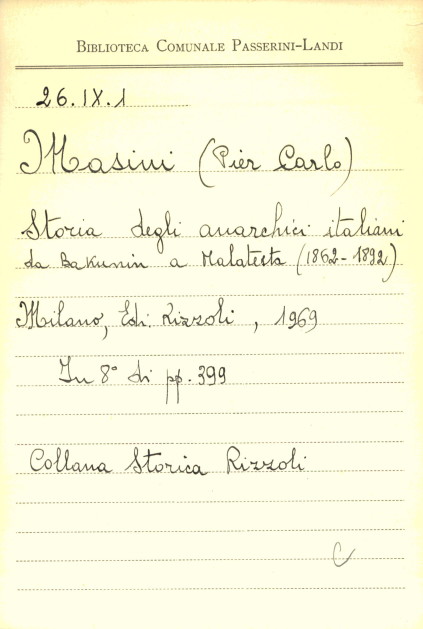 BIBLIOTECA COMUNALE PASSERINI-LANDI
26.IX.1
Masini (Pier Carlo)
Storia degli anarchici italiani
da Bakunin a Malatesta (1862-1892)
Milano, Edi. Rizzoli, 1969
In 8° di pp. 399
Collana Storica Rizzoli
C